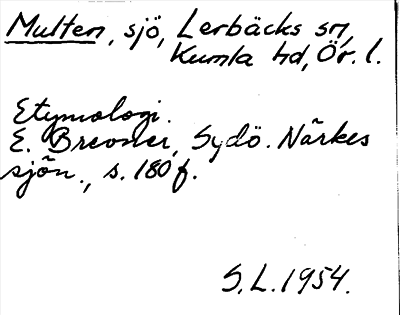 Multen, sjö, Lerbäcks sn,
Kumla hd, Ör. l.
Etymologi.
E. Brevner, Sydö. Närkes
sjön., s. 180 f.
S.L. 1954.